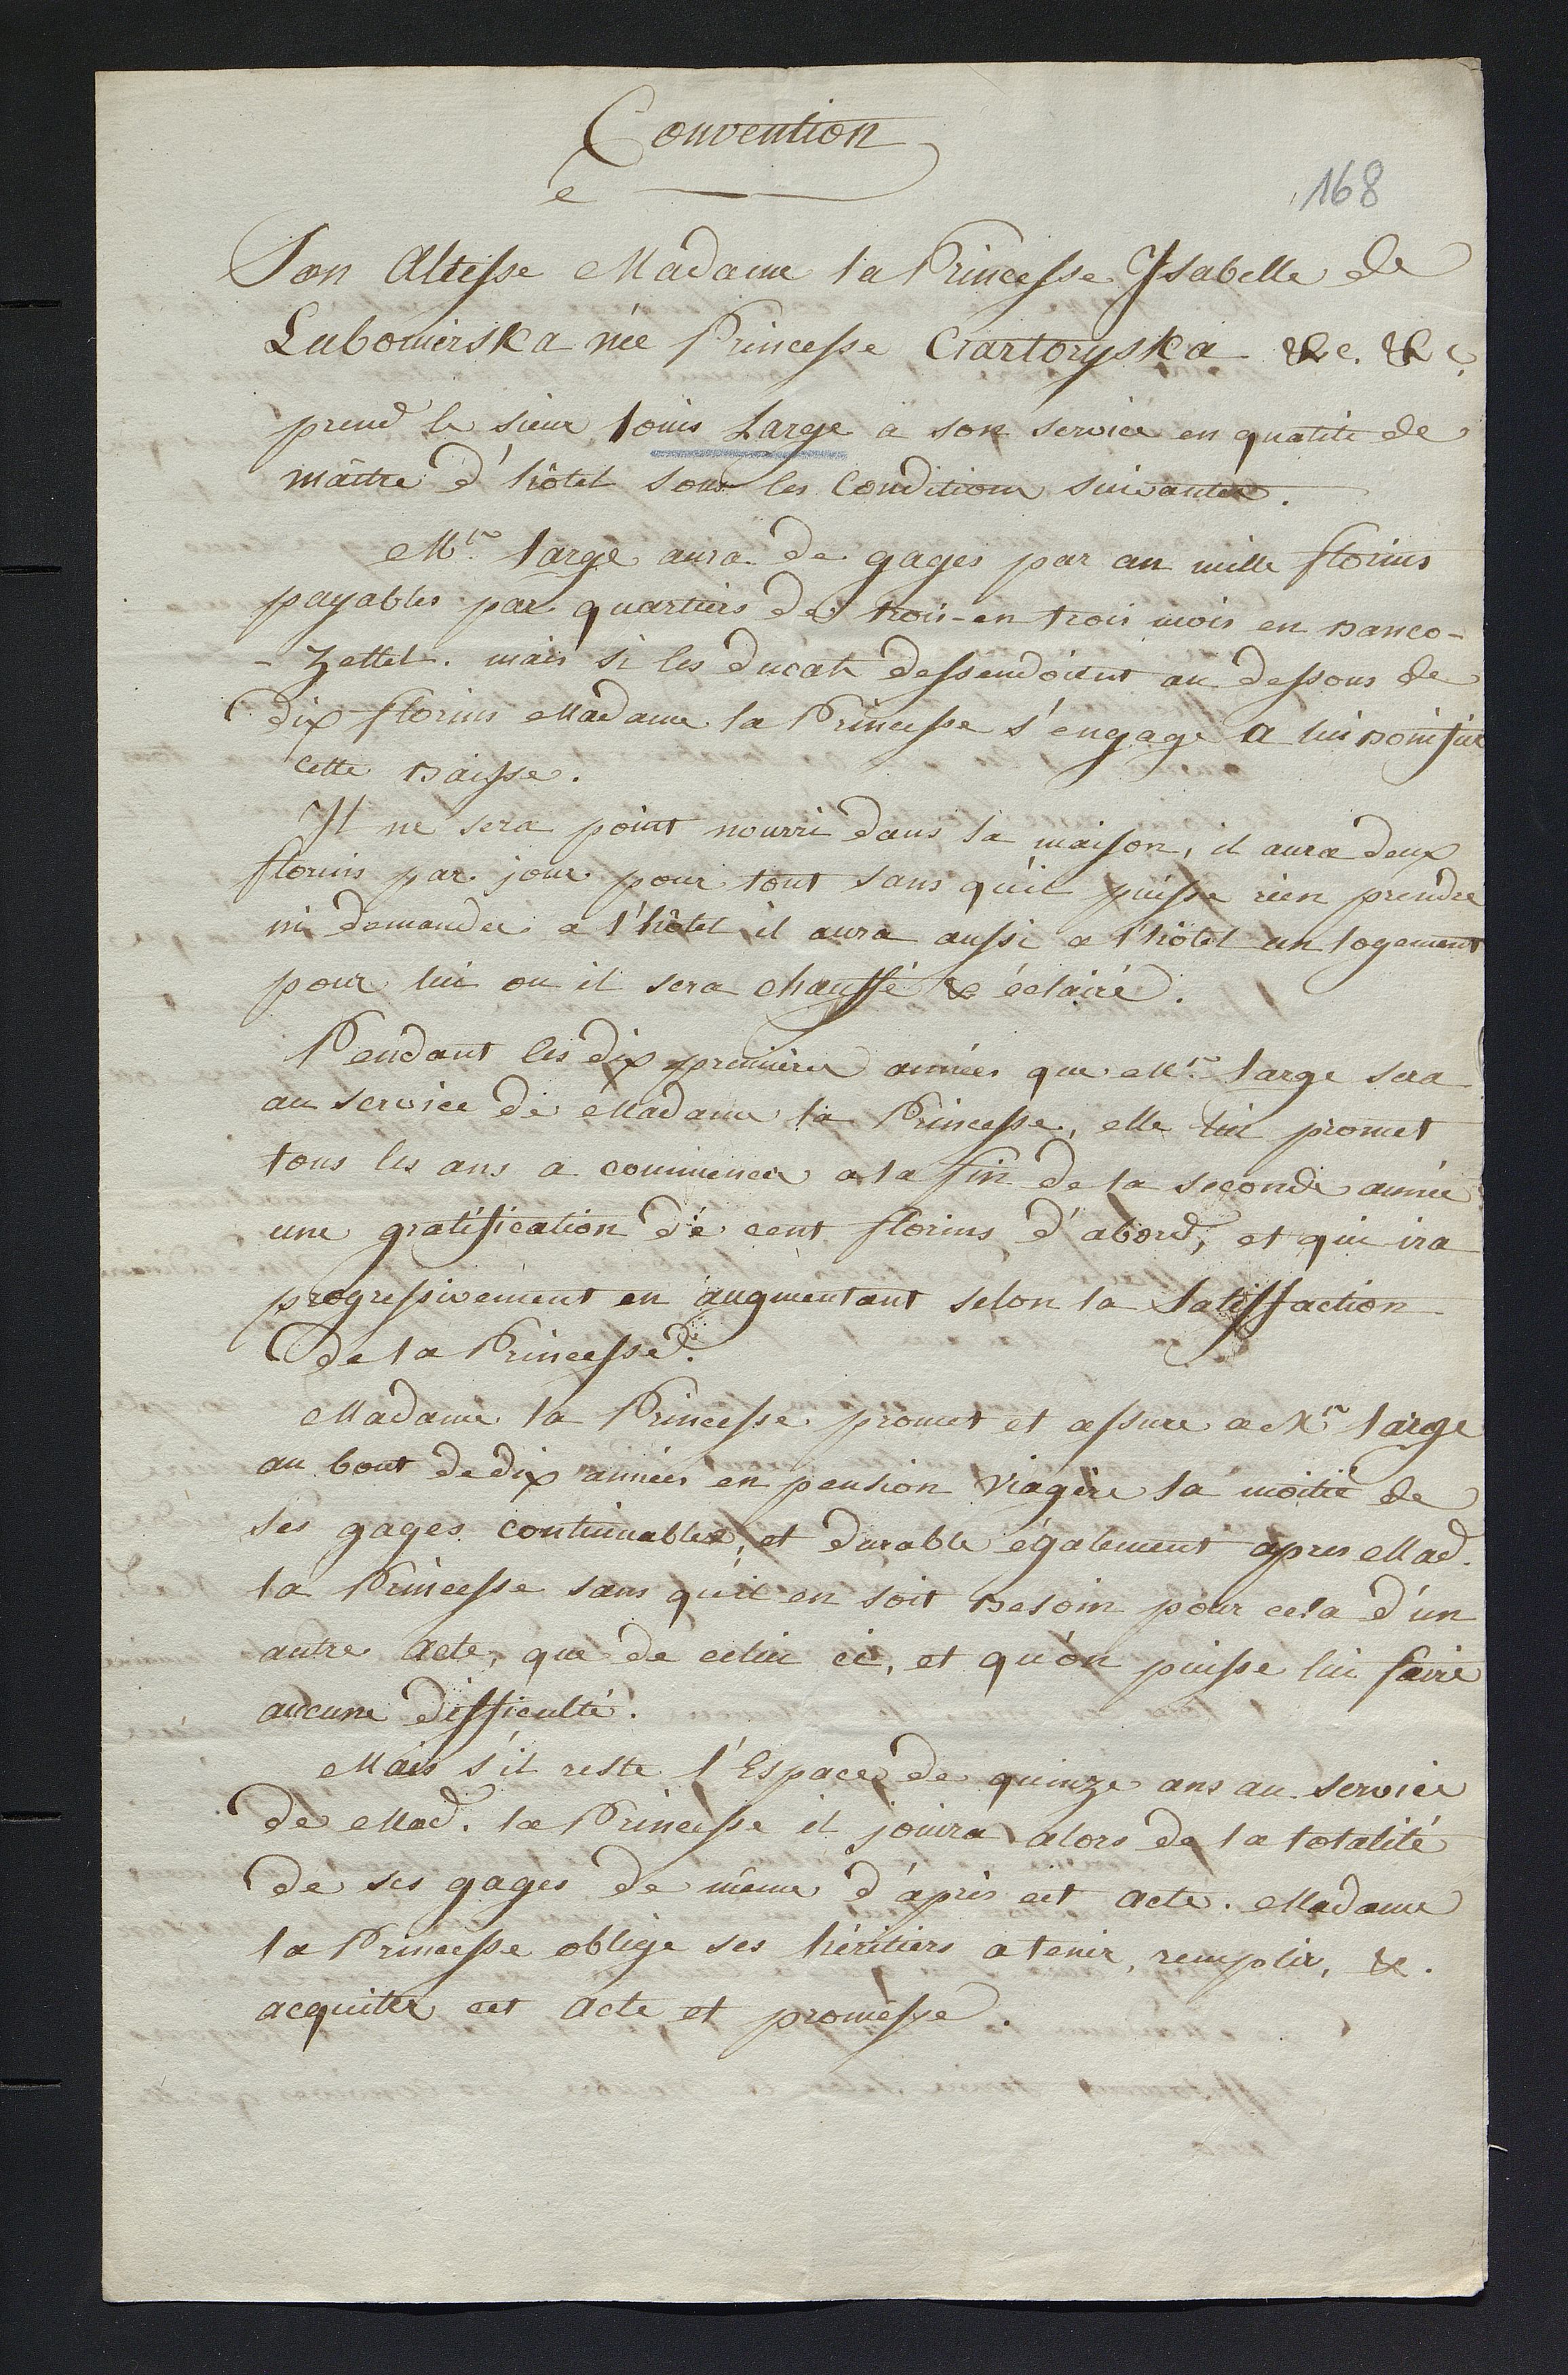 Convention
168
Son Altesse Madame la Princesse Isabelle de
Lubomirska née Princesse Czartoryska &c. &c
prend le sieur Louis Large a son service en qualité de
maître d'hôtel sous les Conditions suivantes.
Mr. Large aura de gages par an mille florins
payables par quartiers de trois-en trois mois en Banco-
-Zettel. mais si les ducats dessendoient au dessous de
dix florins Madame la Princesse s'engage a lui bonifier
cette Baisse.
Il ne sera point nourri dans la maison, il aura deux
florins par jour pour tout sans qu'il puisse rien prendre
ni demander a l'hôtel il aura aussi a l'hôtel un logement
pour lui ou il sera chauffé & éclairé.
Pendant les dix premieres années que Mr. Large sera
au service de Madame la Princesse, elle lui promet
tous les ans a commencer a la fin de la seconde année
une gratification de cent florins d'abord, et qui ira
progressivement en augmentant selon la Satisfaction
de la Princesse.
Madame la Princesse promet et assure a Mr. Large
au bout de dix années en pension viagère la moitié de
ses gages continuables, et durable également apres Mad.
la Princesse sans qu'il en soit Besoin pour cela d'un
autre Acte, que de celui ci, et qu'on puisse lui faire
aucune difficulté.
Mais s'il reste l'Espace de quinze ans au service
de Mad. la Princesse il jouira alors de la totalité
de ses gages de même d'après cet Acte. Madame
la Princesse oblige ses héritiers a tenir, remplir, &.
acquiter cet Acte et promesse.